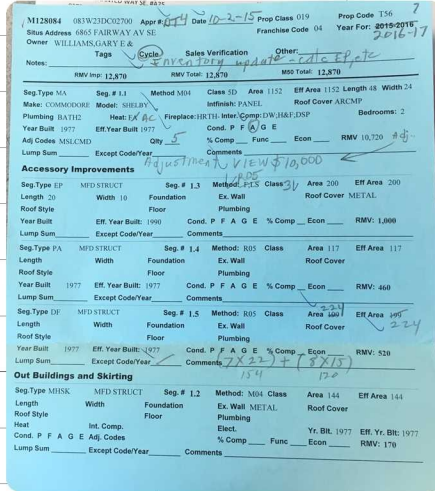 M128084 083W23DC02700 Appr# Date 10-2-15 Prop Class 019 Prop Code T56
Situs Address 6865 FAIRWAY AV SE Franchise Code 04 Year For: 2015-2016
2016-17
Owner WILLIAMS,GARY E &
Tags Cycle Sales Verification Other:
Notes: Inventory update - calc EP, etc
RMV Imp: 12,870 RMV Total: 12,870 M50 Total: 12,870
Seg.Type MA Seg. # 1.1 Method M04 Class 5D Area 1152 Eff Area 1152 Length 48 Width 24
Make: COMMODORE Model: SHELBY Intfinish: PANEL Roof Cover ARCMP
Plumbing BATH2 Heat: FA AC Fireplace: HRTH- Inter.Comp: DW;H&F;DSP Bedrooms: 2
Year Built 1977 Eff.Year Built 1977 Cond. P F A G E
Adj Codes MSLCMD Qlty 5 % Comp Func Econ RMV 10,720 Adj-
Lump Sum Except Code/Year Comments
Adjustment, VIEW $10,000
Accessory Improvements
R05
Seg.Type EP MFD STRUCT Seg. # 1.3 Method: Class 3 Area 200 Eff Area 200
Length 20 Width 10 Foundation Ex. Wall Roof Cover METAL
Roof Style Floor Plumbing
Year Built Eff. Year Built: 1990 Cond. P F A G E % Comp Econ RMV: 1,000
Lump Sum Except Code/Year Comments
Seg.Type PA MFD STRUCT Seg. # 1.4 Method: R05 Class Area 117 Eff Area 117
Length Width Foundation Ex. Wall Roof Cover
Roof Style Floor Plumbing
Year Built 1977 Eff. Year Built: 1977 Cond. P F A G E % Comp Econ RMV: 460
Lump Sum Except Code/Year Comments
274
Seg.Type DF MFD STRUCT Seg. # 1.5 Method: R05 Class Area 199 Eff Area 199
274
Length Width Foundation Ex. Wall Roof Cover
Roof Style Floor Plumbing
Year Built 1977 Eff. Year Built: 1977 Cond. P F A G E % Comp Econ RMV: 520
Lump Sum Except Code/Year Comments (7X22) + (8X15)
154 120
Out Buildings and Skirting
Seg.Type MHSK MFD STRUCT Seg. # 1.2 Method: M04 Class Area 144 Eff Area 144
Length Width Foundation Ex. Wall METAL Roof Cover
Roof Style Floor Plumbing
Heat Int. Comp. Elect. Yr. Blt. 1977 Eff. Yr. Blt: 1977
Cond. P F A G E Adj. Codes % Comp Func Econ RMV: 170
Lump Sum Except Code/Year Comments